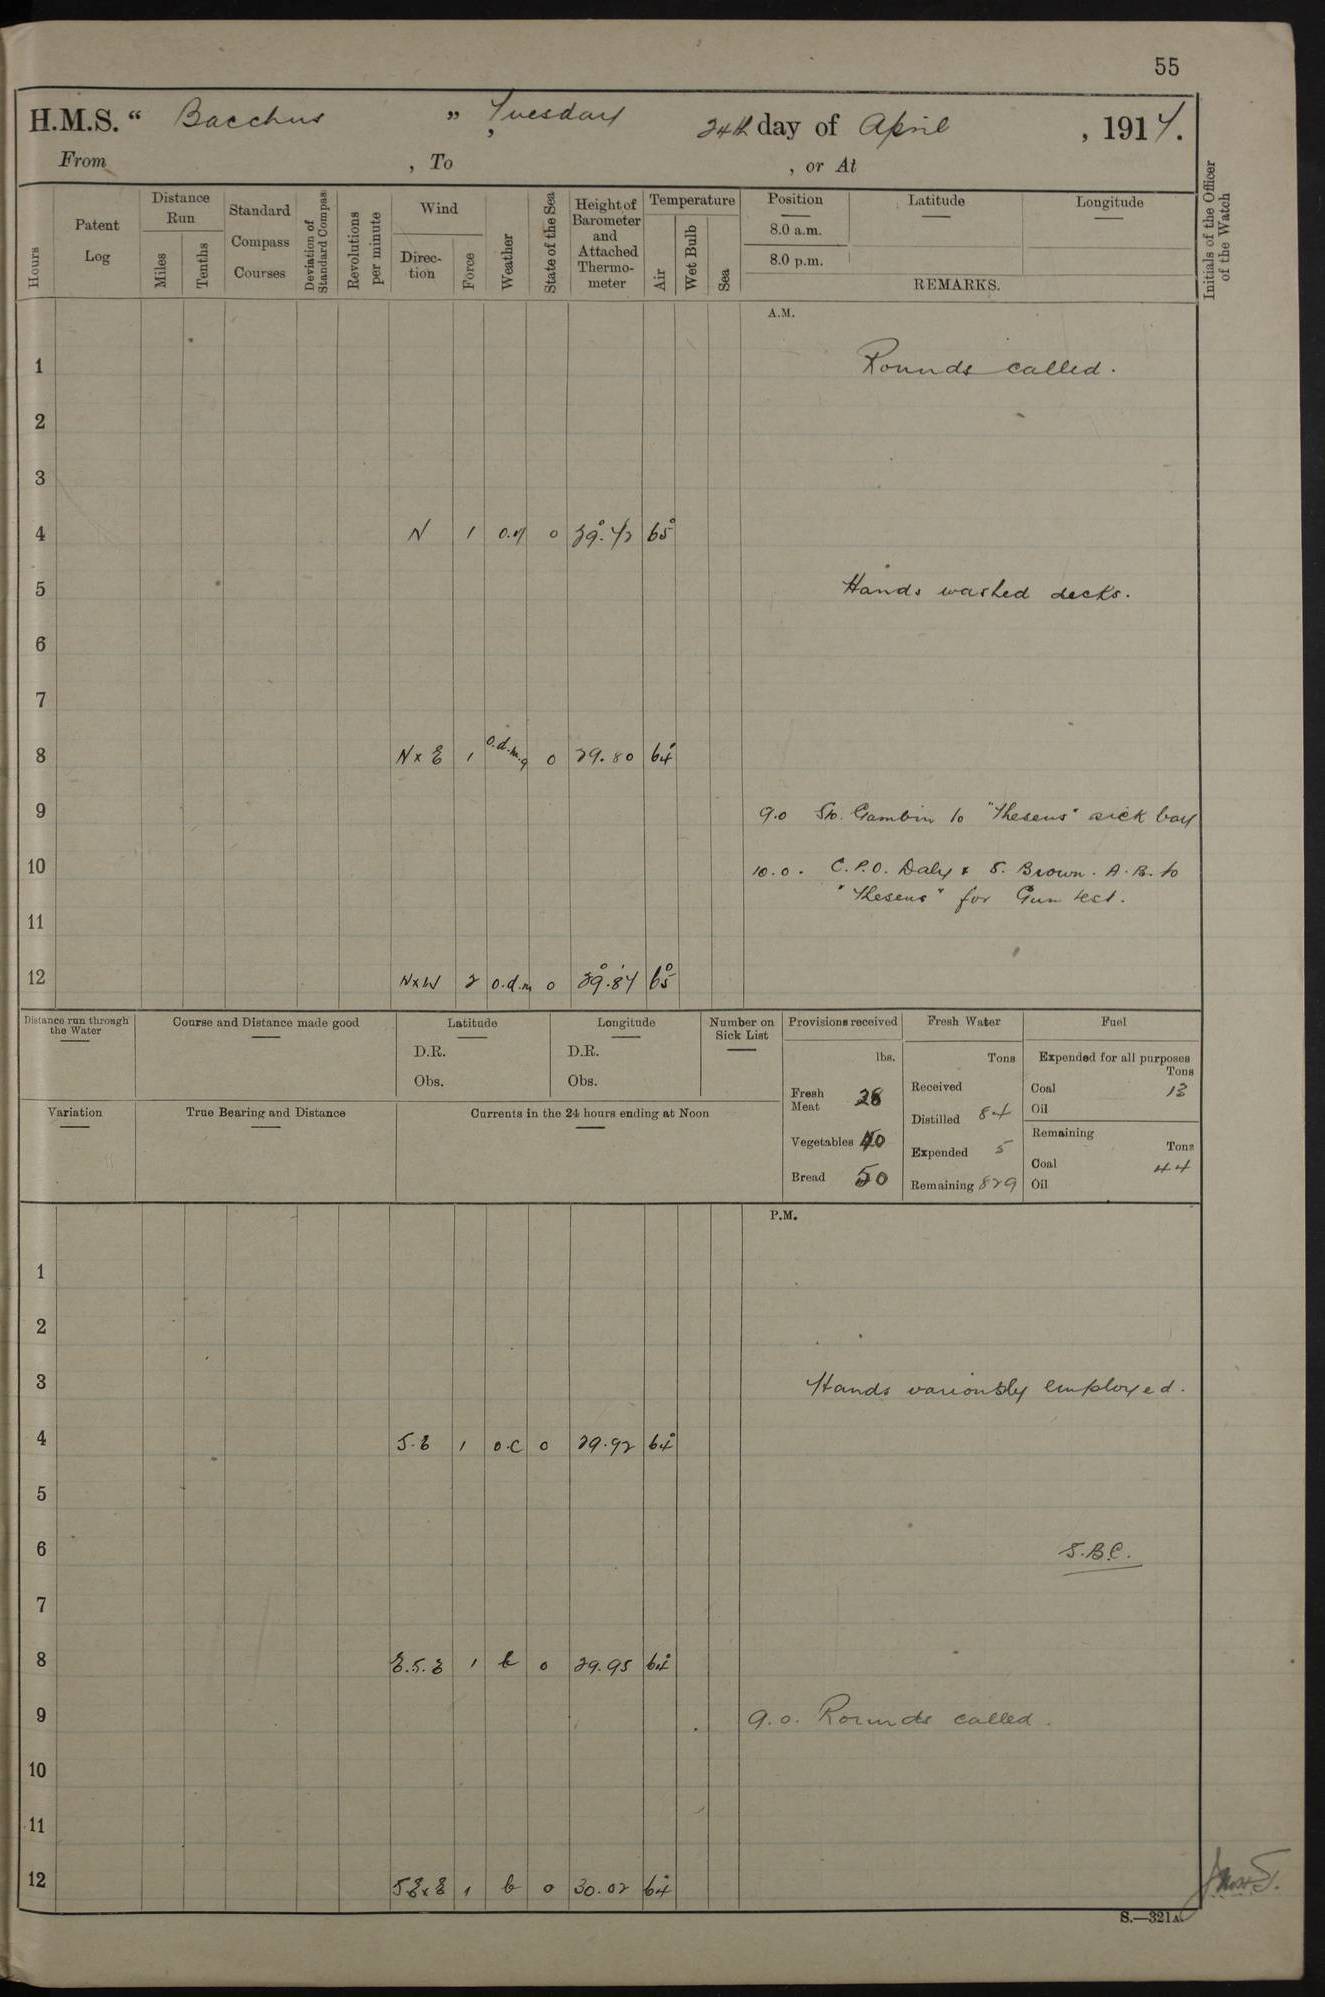 55
H.M.S. “ Bacchus ” , Tuesday 24th day of April , 1917.
From , To , or At
Hours
Patent Log
Distance Run
Miles
Tenths
Standard Compass Courses
Deviation of Standard Compass
Revolutions per minute
Wind
Direction
Force
Weather
State of the Sea
Height of Barometer and Attached Thermometer
Temperature
Air
Wet Bulb
Sea
Position
8.0 a.m.
8.0 p.m.
Latitude
Longitude
REMARKS.
Initials of the Officer of the Watch
A.M.
1 Rounds called.
2
3
4 N 1 0 65°
5 Hands washed decks.
6
7
8 N x E 1 o.d.m.q 0 29.80 64°
9 9.0 Sto. Gambin to "Theseus" sick bay
10 10.0. C.P.O. Daly & S. Brown. A.B. to
"Theseus" for Gun test.
11
12 N x W 2 o.d.m 0 29.87 65°
Distance run through the Water
Course and Distance made good
Latitude
D.R.
Obs.
Longitude
D.R.
Obs.
Number on Sick List
Provisions received
lbs.
Fresh Meat 28
Vegetables 40
Bread 50
Fresh Water
Tons
Received
Distilled 84
Expended 5
Remaining 829
Fuel
Expended for all purposes
Tons
Coal 13
Oil
Remaining
Tons
Coal 44
Oil
Variation
True Bearing and Distance
Currents in the 24 hours ending at Noon
P.M.
1
2
3 Hands variously employed.
4 S.E 1 o.c 0 29.92 64°
5
6 S.B.C.
7
8 E.S.E 1 b 0 29.95 64°
9 9.0. Rounds called.
10
11
12 SE x E 1 b 0 30.02 64°
S.—321A.